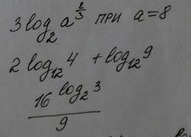 3 log₂ a^(2/3) при a=8
2 log₁₂ 4 + log₁₂ 9
16^(log₂ 3)
9